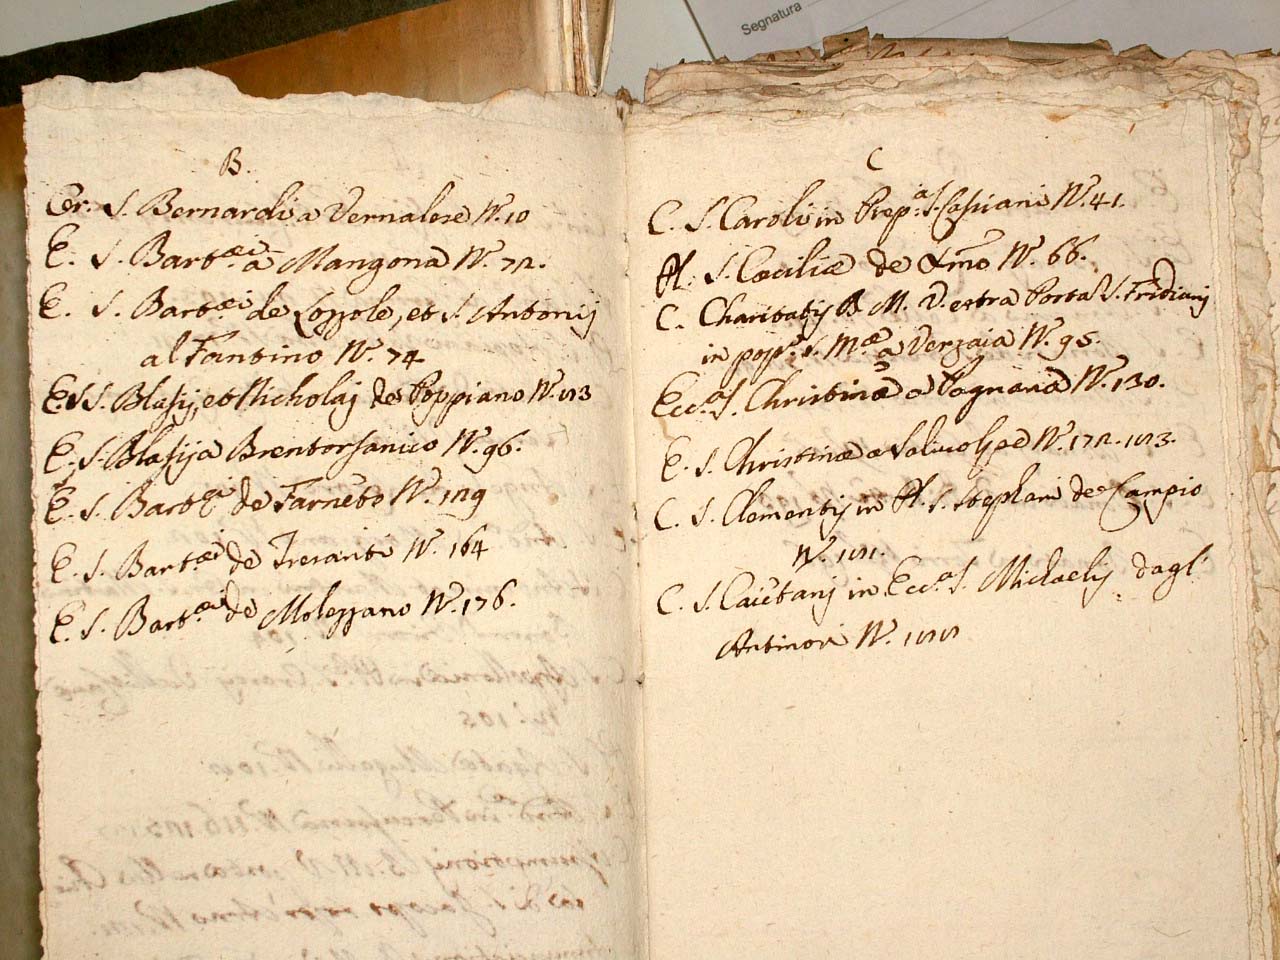 Segnatura
B.
Cer. S. Bernardi a Vernalese N.º 10
E. S. Bart.ei a Mangona N.º 72.
E. S. Bart.ei de Lozzole, et S. Antonij
al Fantino N.º 74
E. SS. Blasij, et Nicholaj de Poppiano N.º 123
E. S. Blasij a Brentorsanico N.º 96.
E. S. Bart.ei de Farneto N.º 129
E. S. Bart.ei de Tresanti N.º 164
E. S. Bart.ei de Molezzano N.º 176.
C
C. S. Caroli in Prep.a S. Cassiani N.º 41.
Pl. S. Cæciliæ de N.º 66.
C. Charitatis B. M. V. extra Porta S. Fridiani
in pop.º S. M.æ a Verzaia N.º 95.
Ecc.a S. Christinæ a Pagnana N.º 130.
E. S. Christinæ a Salivolpe N.º 172.
C. S. Clementij in Pl. S. Stephani de Campio
N.º
C. S. Caietani in Ecc.a S. Michaelis dagl'
Antinori N.º